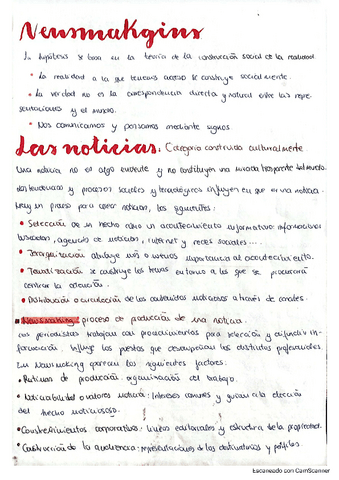 Newsmakgins
La hipótesis se basa en la teoría de la construcción social de la realidad
• La realidad a la que tenemos acceso se construye socialmente.
• La verdad no es la correspondencia directa y natural entre las repre-
sentaciones y el mundo.
• Nos comunicamos y pensamos mediante signos
Las noticias: Categoría construida culturalmente
Una noticia no es algo evidente y no constituyen una mirada transparente del mundo.
tendencias y procesos sociales y tecnológicos influyen en que es una noticia.
Hay un proceso para crear noticias, los siguientes:
• Selección de un hecho como un acontecimiento informativo:
buscadas, agencias de noticias, internet y redes sociales...
• Jerarquización atribuye más o menos importancia al acontecimiento.
• Tematización se construye los temas en torno a los que se procurará
centrar la atención.
• Distribución o circulación de los contenidos noticiosos a través de canales.
Newsmaking: proceso de producción de una noticia.
Los periodistas trabajan con procedimientos para selección y difundir in-
formación. Influye los puestos que desempeñan los distintos profesionales.
En Newsmaking operan los siguientes factores:
• Rutinas de producción: organización del trabajo.
• Noticiabilidad o valores noticia: Intereses comunes y guían a la elección
del hecho noticioso.
• Constreñimientos corporativos: líneas editoriales y estructura de la propiedad.
• Construcción de la audiencia: representaciones de los destinatarios y perfiles.
Escaneado con CamScanner